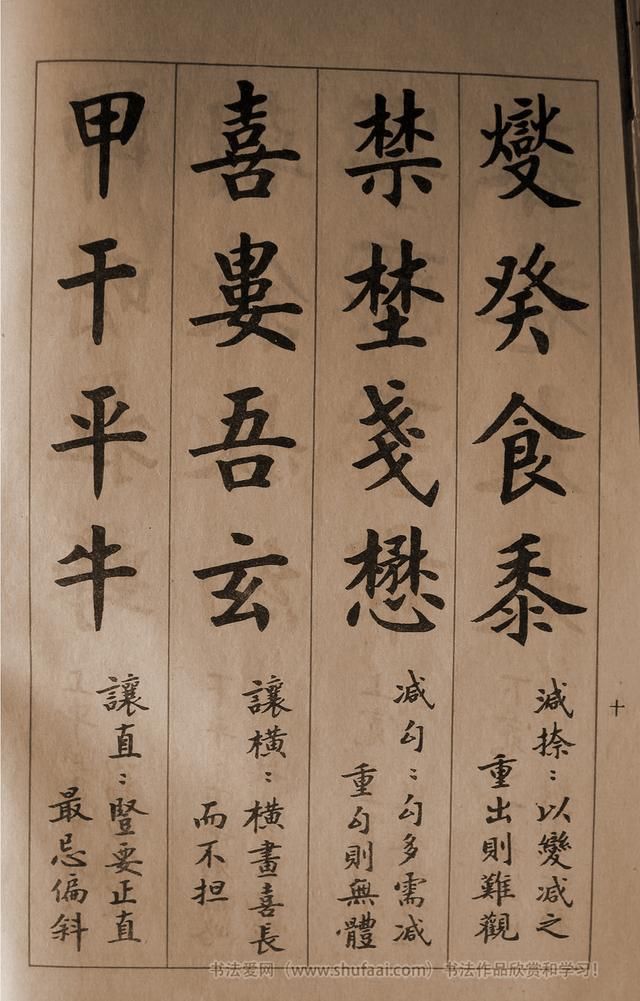 燮癸食黍
減捺：以變减之
重出則難觀
禁埜戔懋
减勾：勾多需减
重勾則無體
喜婁吾玄
讓橫：橫畫喜長
而不担
甲干平牛
讓直：豎要正直
最忌偏斜
十
书法爱网（www.shufaai.com）—书法作品欣赏和学习！